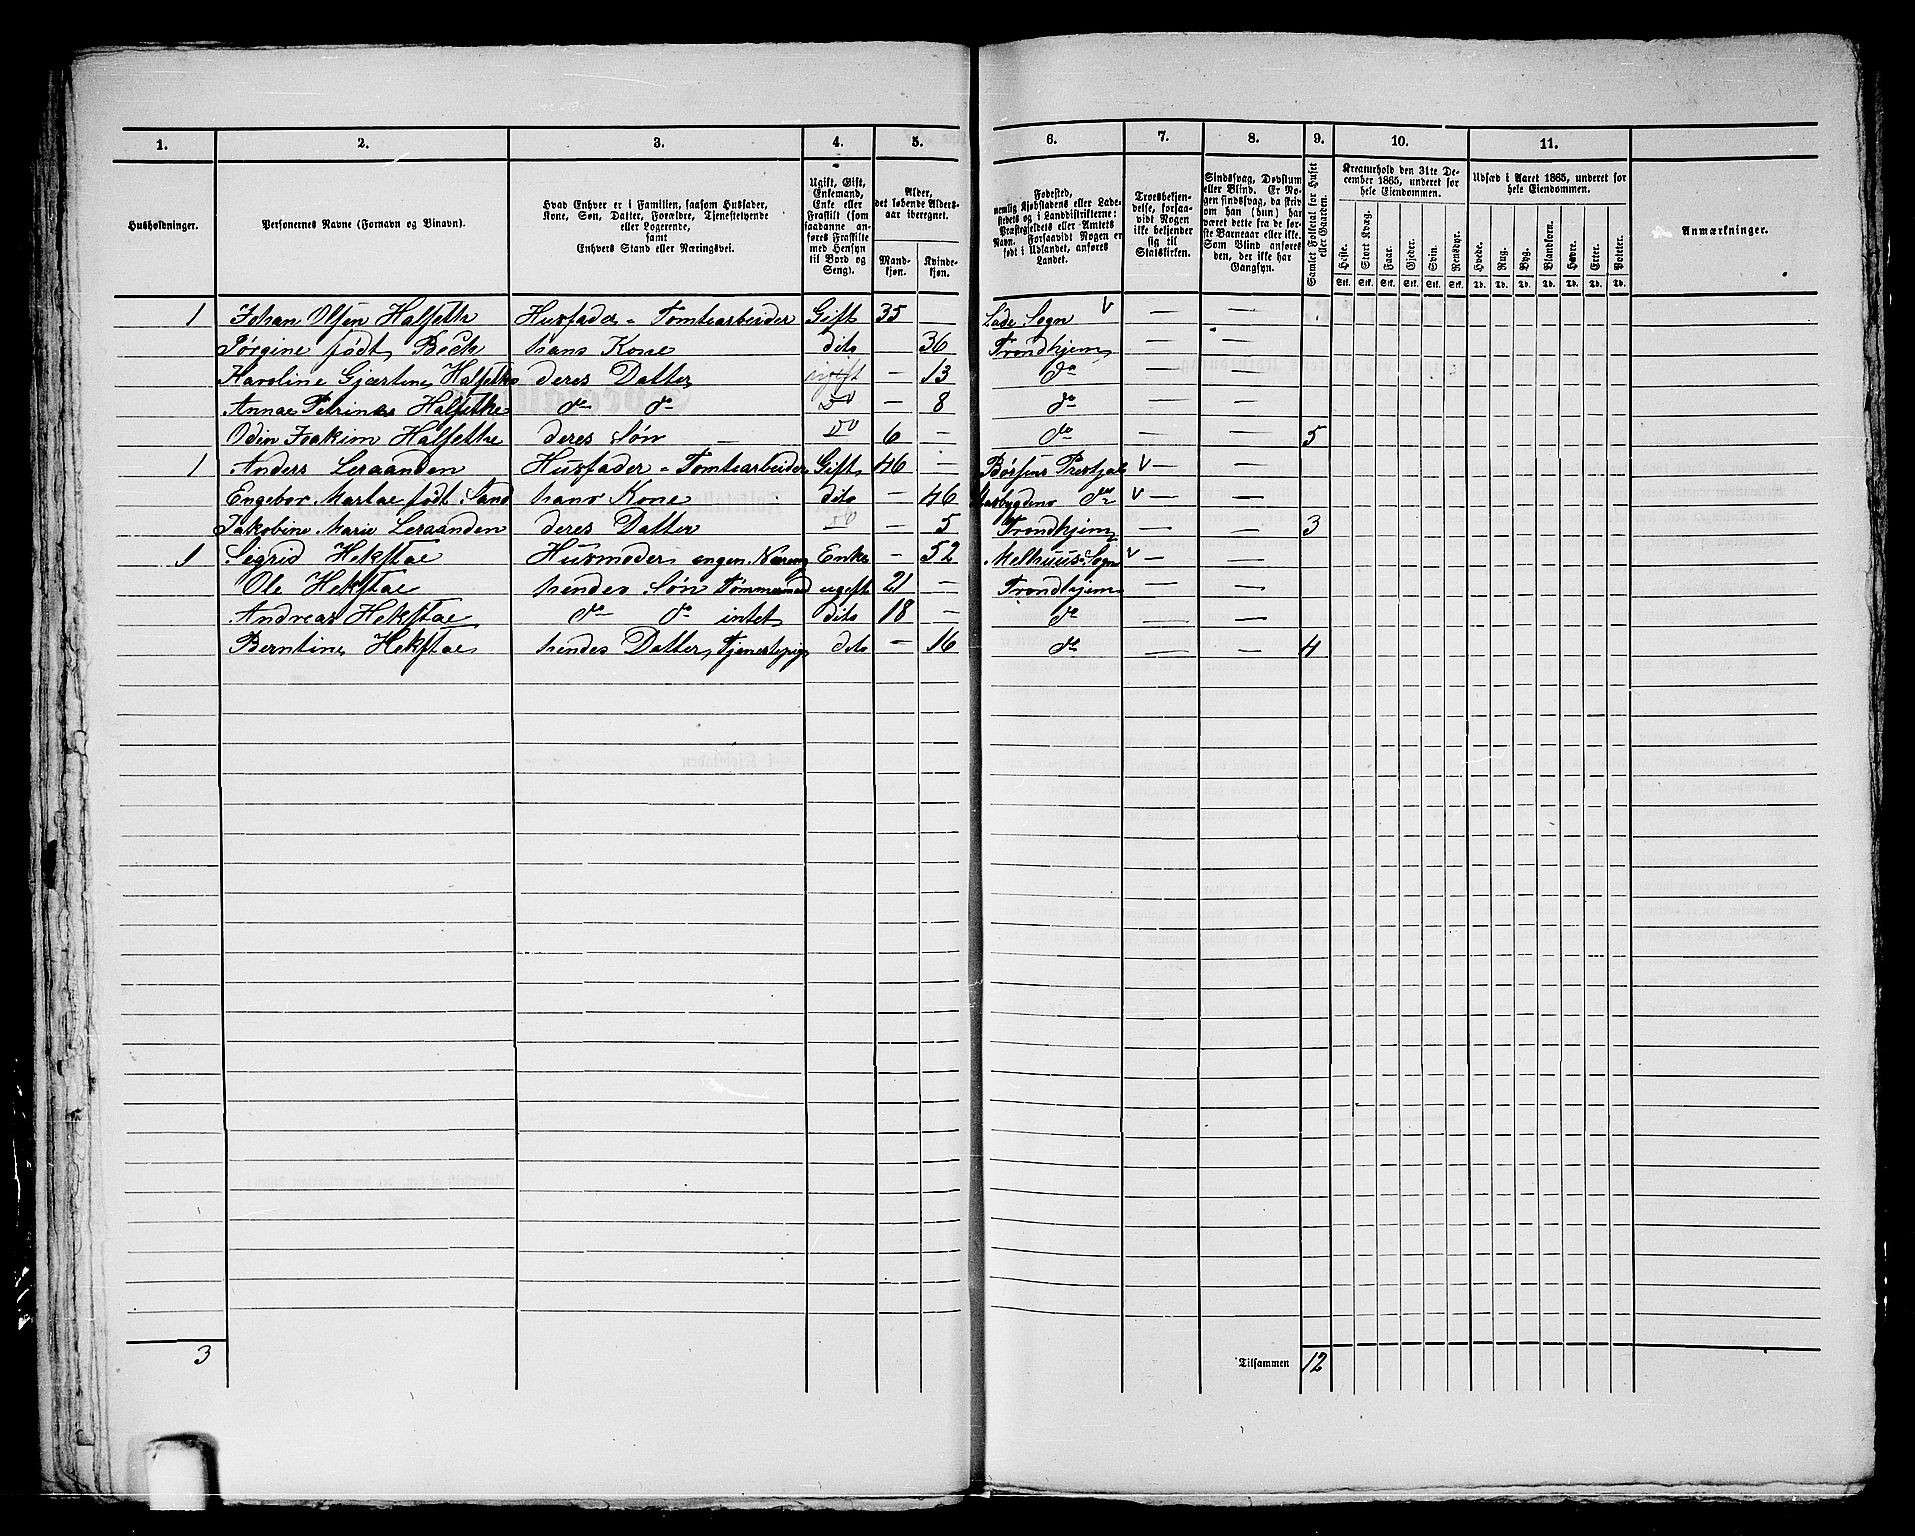 1. 2. 3. 4. 5. 6. 7. 8. 9. 10. 11.
Husholdninger.
Personernes Navne (Fornavn og Binavn).
Hvad Enhver er i Familien, saasom Husfader, Kone, Søn, Datter, Forældre, Tjenestetyende eller Logerende, samt Enhvers Stand eller Næringsvei.
Ugift, Gift, Enkemand, Enke eller Fraskilt (som saadanne anføres Fraskilte med Hensyn til Bord og Seng).
Alder, det løbende Aldersaar iberegnet.
Mandkjøn. Kvindekjøn.
Fødested, nemlig Kjøbstadens eller Ladestedets og i Landdistrikterne: Præstegjeldets eller Amtets Navn. Forsaavidt Nogen er født i Udlandet, anføres Landet.
Troesbekjendelse, forsaavidt Nogen ikke bekjender sig til Statskirken.
Sindssvag, Døvstum eller Blind. Er Nogen sindssvag, da skriv om han (hun) har været dette fra de første Barneaar eller ikke. Som Blind anføres den, der ikke har Gangsyn.
Samlet Folketal for Huset eller Gaarden.
Kreaturhold den 31te December 1865, underet for hele Eiendommen.
Heste. Stort Kvæg. Faar. Gjeder. Svin. Rensdyr.
Stk. Stk. Stk. Stk. Stk. Stk.
Udsæd i Aaret 1865, underet for hele Eiendommen.
Hvede. Rug. Byg. Blandkorn. Havre. Erter. Poteter.
Td. Td. Td. Td. Td. Td. Td.
Anmærkninger.
1 Johan Olsen Halseth Husfader - Tomtearbeider Gift 35 — Lade Sogn v — —
Jørgine født Beck hans Kone dito 36 Trondhjem — —
Karoline Gjærtine Halsethe deres Datter ugift — 13 do — —
Annae Petrine Halsethe do do Do — 8 do — —
Odin Joakim Halsethe deres Søn — Do 6 — do — — 5
1 Anders Leraanden Husfader - Tomtearbeider Gift 46 — Børsens Prestjeld v — —
Engebor Martae født Sand hans Kone dito — 46 Stadsbygdens do v — —
Jakobine Marie Leraanden deres Datter Do — 5 Trondhjem — — 3
1 Sigrid Hekstae Husmoder engen Næring Enke — 52 Melhuus Sogn v — —
Ole Hekstae hendes Søn Tømmermand ugift 21 — Trondhjem — —
Andreas Hekstae do do intet dito 18 — do — —
Berntine Hekstae hendes Datter Tjenestepige dito — 16 do — — 4
3 Tilsammen 12